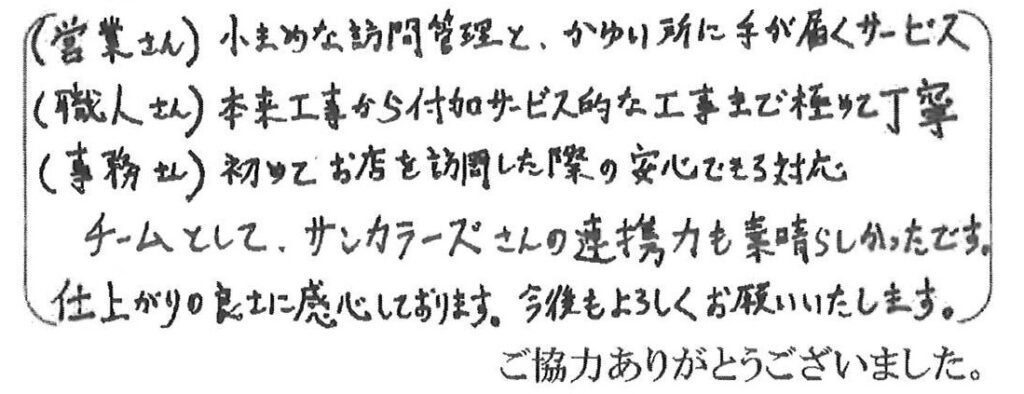 (営業さん) 小まめな訪問管理と、かゆい所に手が届くサービス
(職人さん) 本来工事から付加サービス的な工事まで極めて丁寧
(事務さん) 初めてお店を訪問した際の安心できる対応
チームとして、サンカラーズさんの連携力も素晴らしかったです。
仕上がりの良さに感心しております。今後もよろしくお願いいたします。
ご協力ありがとうございました。